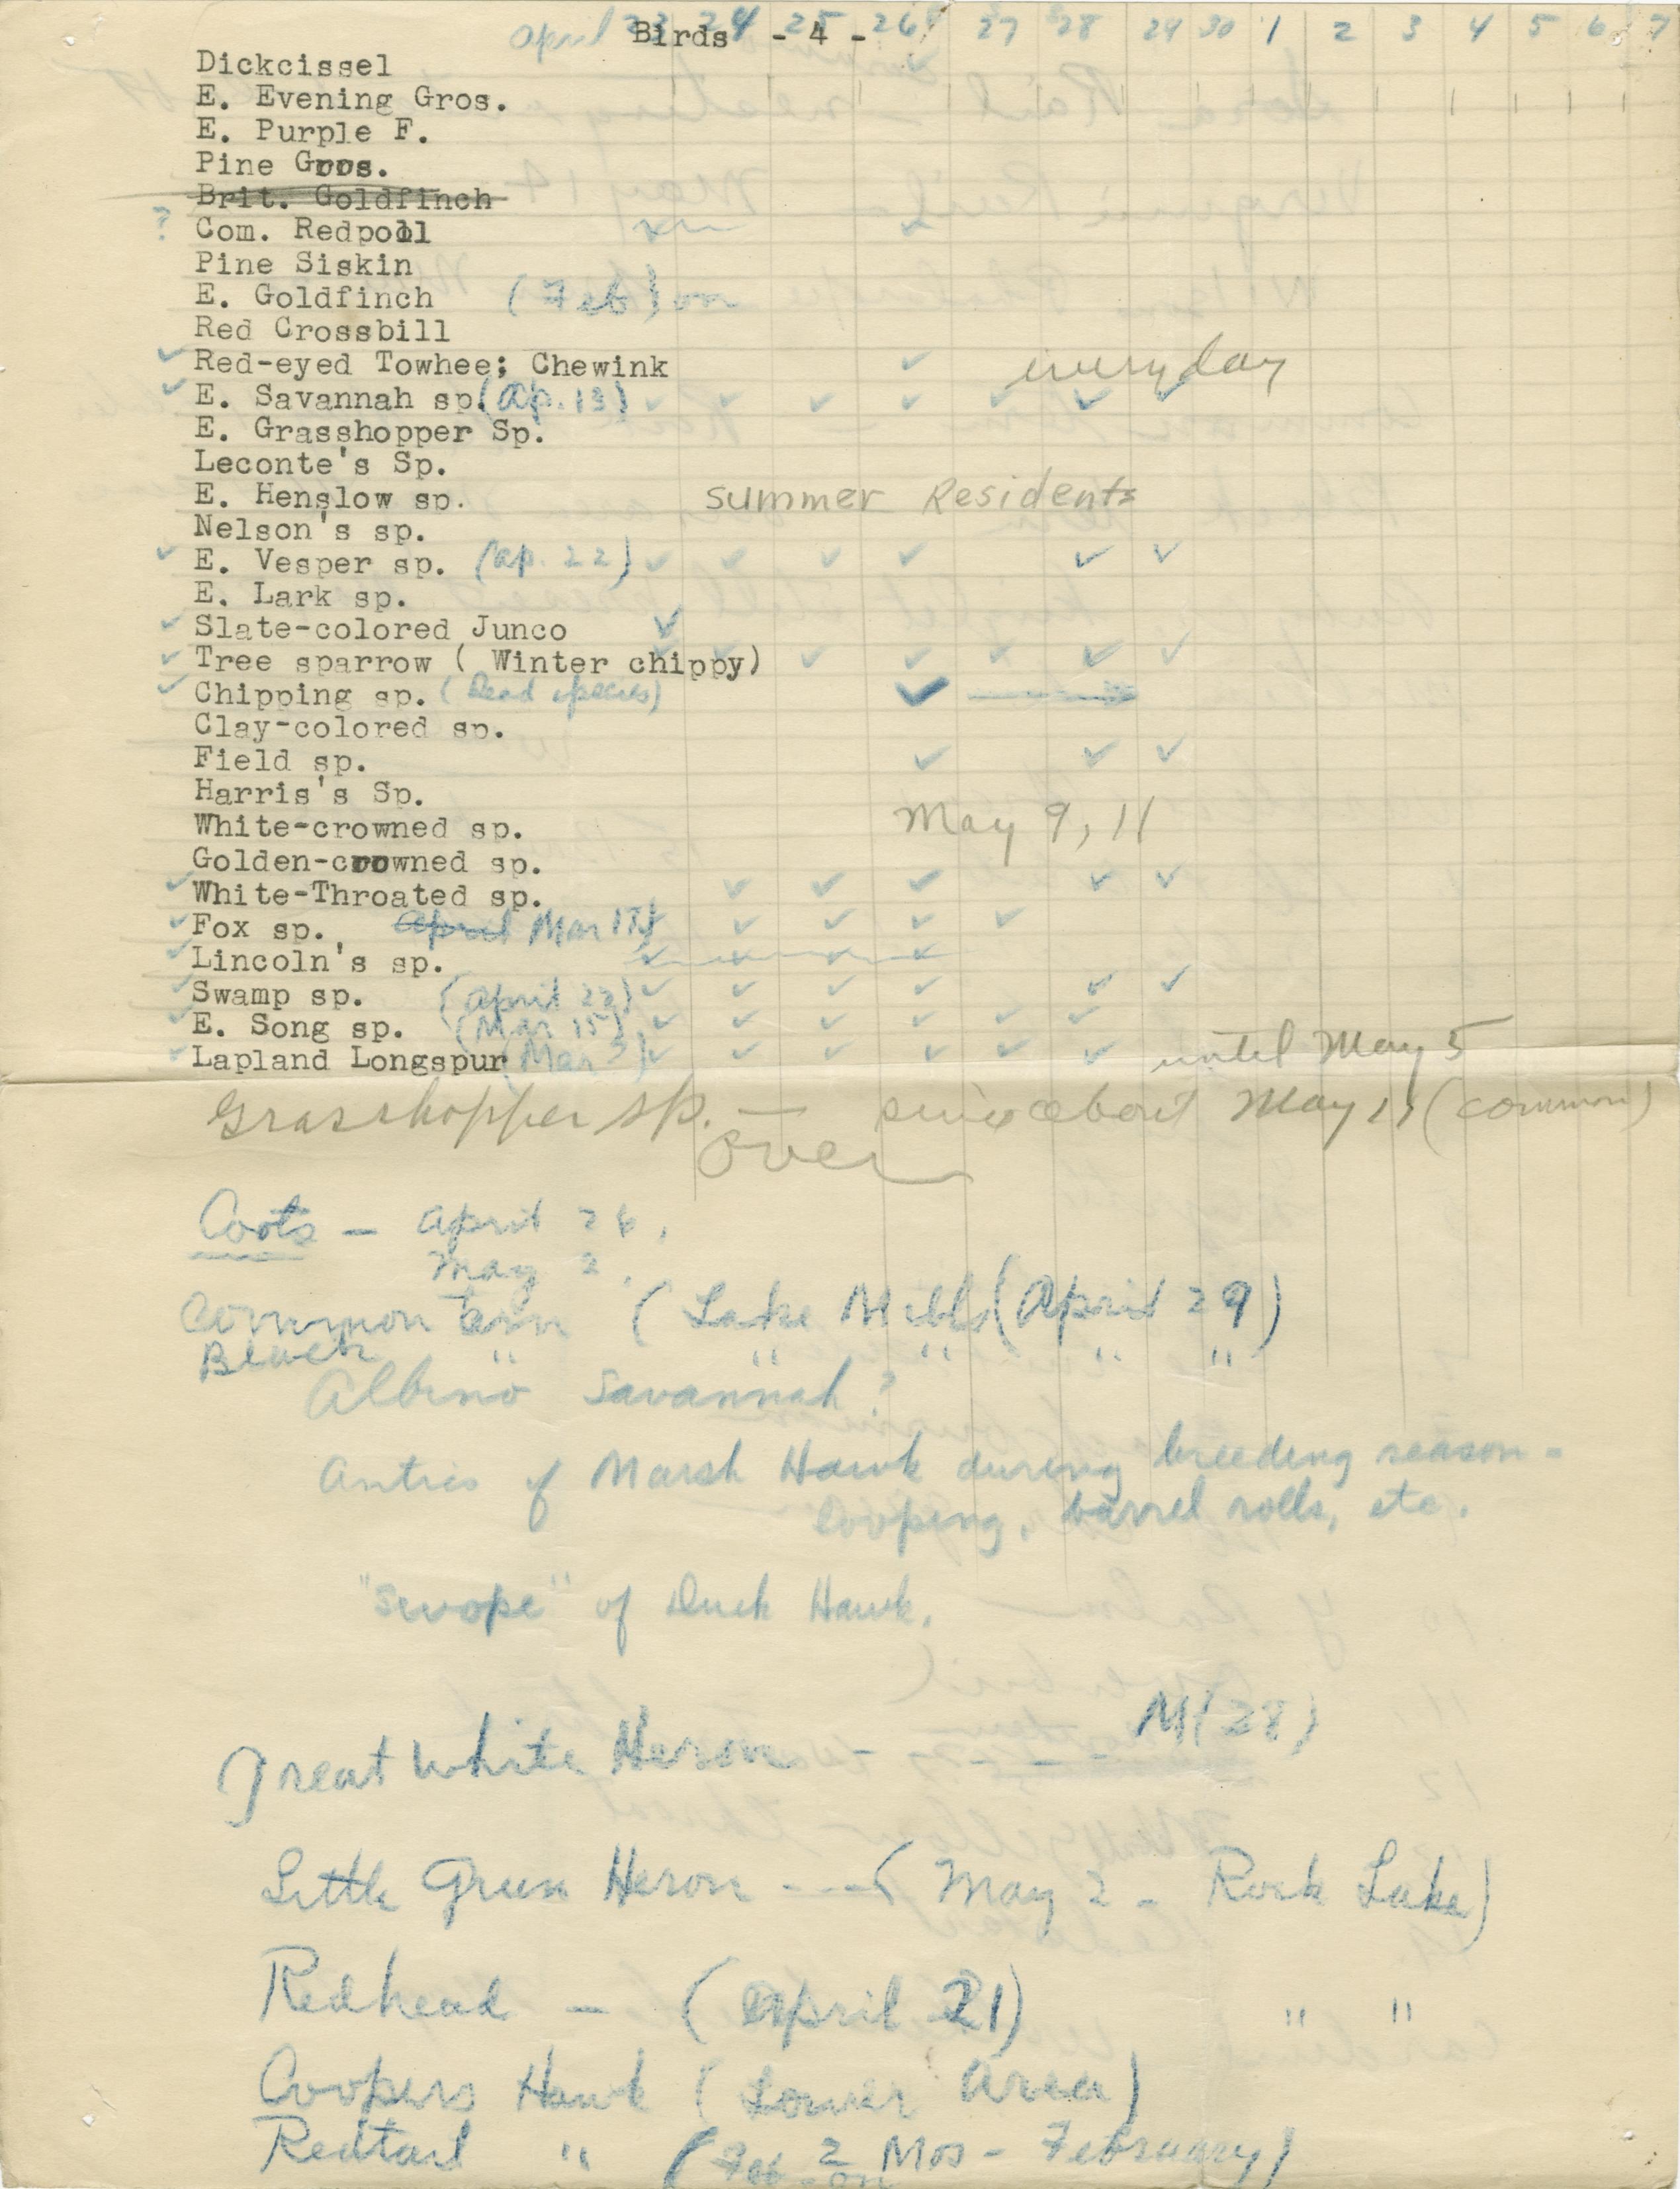 april 23 24 25 26 27 28 29 30 1 2 3 4 5 6 7
Birds - 4 -
Dickcissel ✓
E. Evening Gros.
E. Purple F.
Pine Gros.
Brit. Goldfinch
? Com. Redpoll ✓
Pine Siskin
E. Goldfinch (Feb) on
Red Crossbill
✓ Red-eyed Towhee; Chewink ✓ everyday
✓ E. Savannah sp. (Ap. 13) ✓ ✓ ✓ ✓ ✓ ✓ ✓
E. Grasshopper Sp.
Leconte's Sp.
E. Henslow sp. Summer Residents
Nelson's sp.
✓ E. Vesper sp. (ap. 22) ✓ ✓ ✓ ✓ ✓ ✓
E. Lark sp.
✓ Slate-colored Junco ✓
✓ Tree sparrow ( Winter chippy) ✓ ✓ ✓ ✓ ✓ ✓ ✓
✓ Chipping sp. (Dead species) ✓
Clay-colored sp.
Field sp. ✓ ✓ ✓
Harris's Sp.
White-crowned sp. May 9, 11
Golden-crowned sp.
✓ White-Throated sp. ✓ ✓ ✓ ✓ ✓
✓ Fox sp. April Mar 17 ✓ ✓ ✓ ✓ ✓
✓ Lincoln's sp. ✓ ✓ ✓ ✓
✓ Swamp sp. (April 22) ✓ ✓ ✓ ✓ ✓ ✓
✓ E. Song sp. (Mar 15) ✓ ✓ ✓ ✓ ✓ ✓
✓ Lapland Longspur (Mar ✓ ✓ ✓ ✓ ✓ ✓ until May 5
Grasshopper sp. — since about May (common)
Over
Coots - April 26.
May 2.
Common Tern (Lake Mills (April 29)
Black " " " " "
Albino Savannah?
Antics of Marsh Hawk during breeding season -
looping, barrel rolls, etc.
"Swope" of Duck Hawk.
Great White Heron - - - - M(28)
Little Green Heron ---( May 2 - Rock Lake)
Redhead - (April 21) " "
Coopers Hawk (Lower Area)
Redtail " (Feb 2 Mos - February)
on